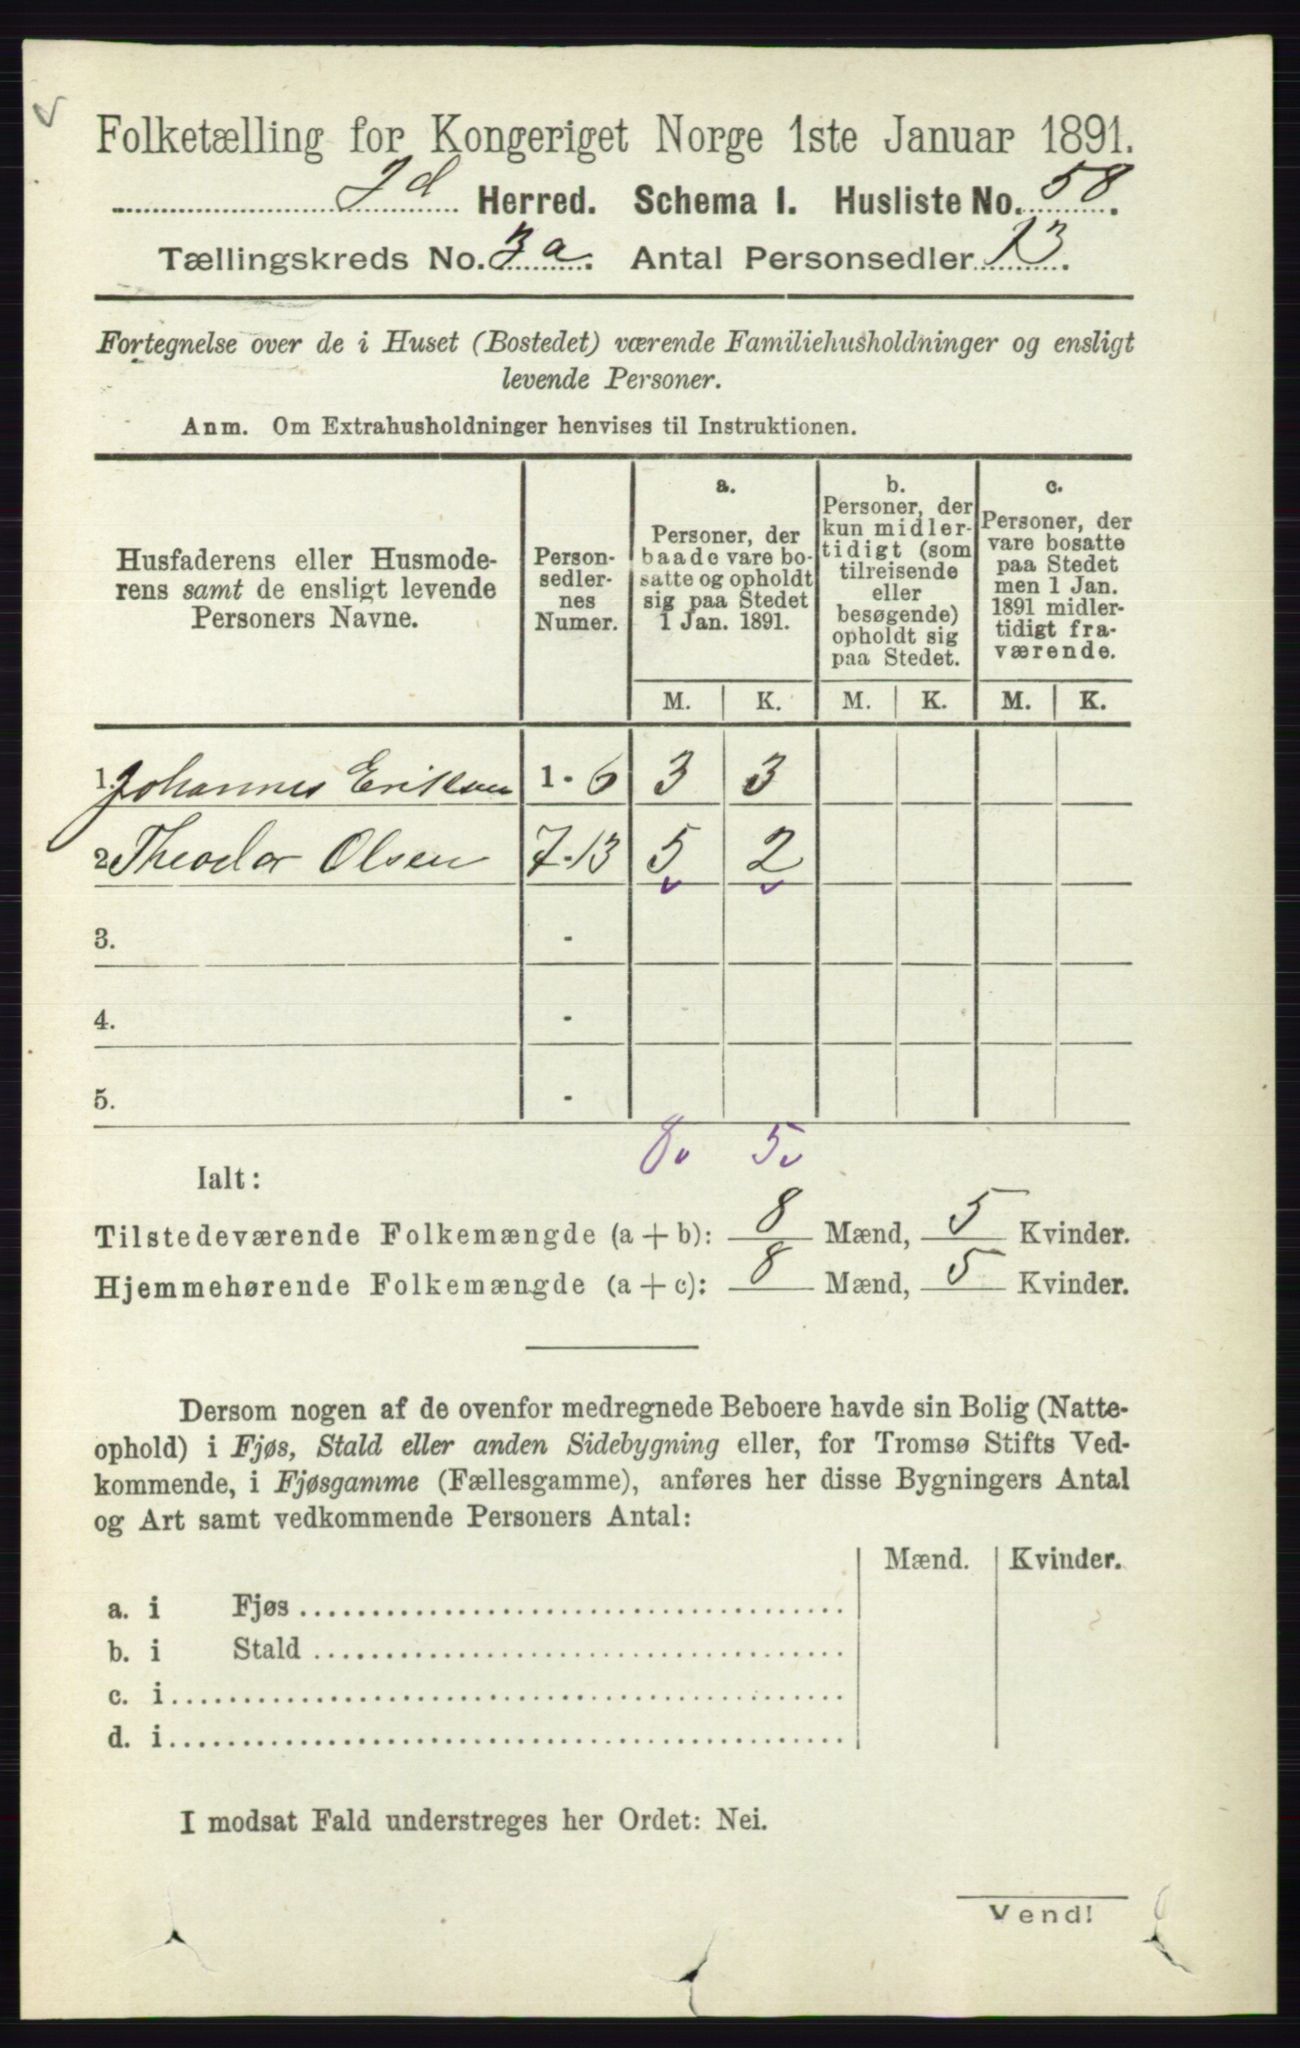 Folketælling for Kongeriget Norge 1ste Januar 1891.
Id Herred. Schema I. Husliste No. 58.
Tællingskreds No. 3a. Antal Personsedler 13.
Fortegnelse over de i Huset (Bostedet) værende Familiehusholdninger og ensligt
levende Personer.
Anm. Om Extrahusholdninger henvises til Instruktionen.
Husfaderens eller Husmode-
rens samt de ensligt levende
Personers Navne.
Person-
sedler-
nes
Numer.
a.
Personer, der
baade vare bo-
satte og opholdt
sig paa Stedet
1 Jan. 1891.
b.
Personer, der
kun midler-
tidigt (som
tilreisende
eller
besøgende)
opholdt sig
paa Stedet.
c.
Personer, der
vare bosatte
paa Stedet
men 1 Jan.
1891 midler-
tidigt fra-
værende.
M. K. M. K. M. K.
1. Johannes Eriksen 1 - 6 3 3
2. Theodor Olsen 7-13 5 2
3. -
4. -
5. -
8 5
Ialt:
Tilstedeværende Folkemængde (a + b): 8 Mænd, 5 Kvinder.
Hjemmehørende Folkemængde (a + c): 8 Mænd, 5 Kvinder.
Dersom nogen af de ovenfor medregnede Beboere havde sin Bolig (Natte-
ophold) i Fjøs, Stald eller anden Sidebygning eller, for Tromsø Stifts Ved-
kommende, i Fjøsgamme (Fællesgamme), anføres her disse Bygningers Antal
og Art samt vedkommende Personers Antal:
Mænd. Kvinder.
a. i Fjøs
b. i Stald
c. i
d. i
I modsat Fald understreges her Ordet: Nei.
Vend!